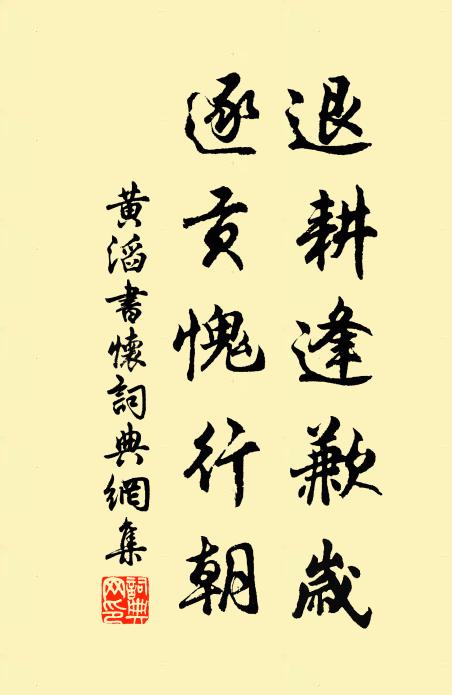 退耕逢歉歲
逐貢愧行朝
黃滔書懷詞典網集
詞典網印